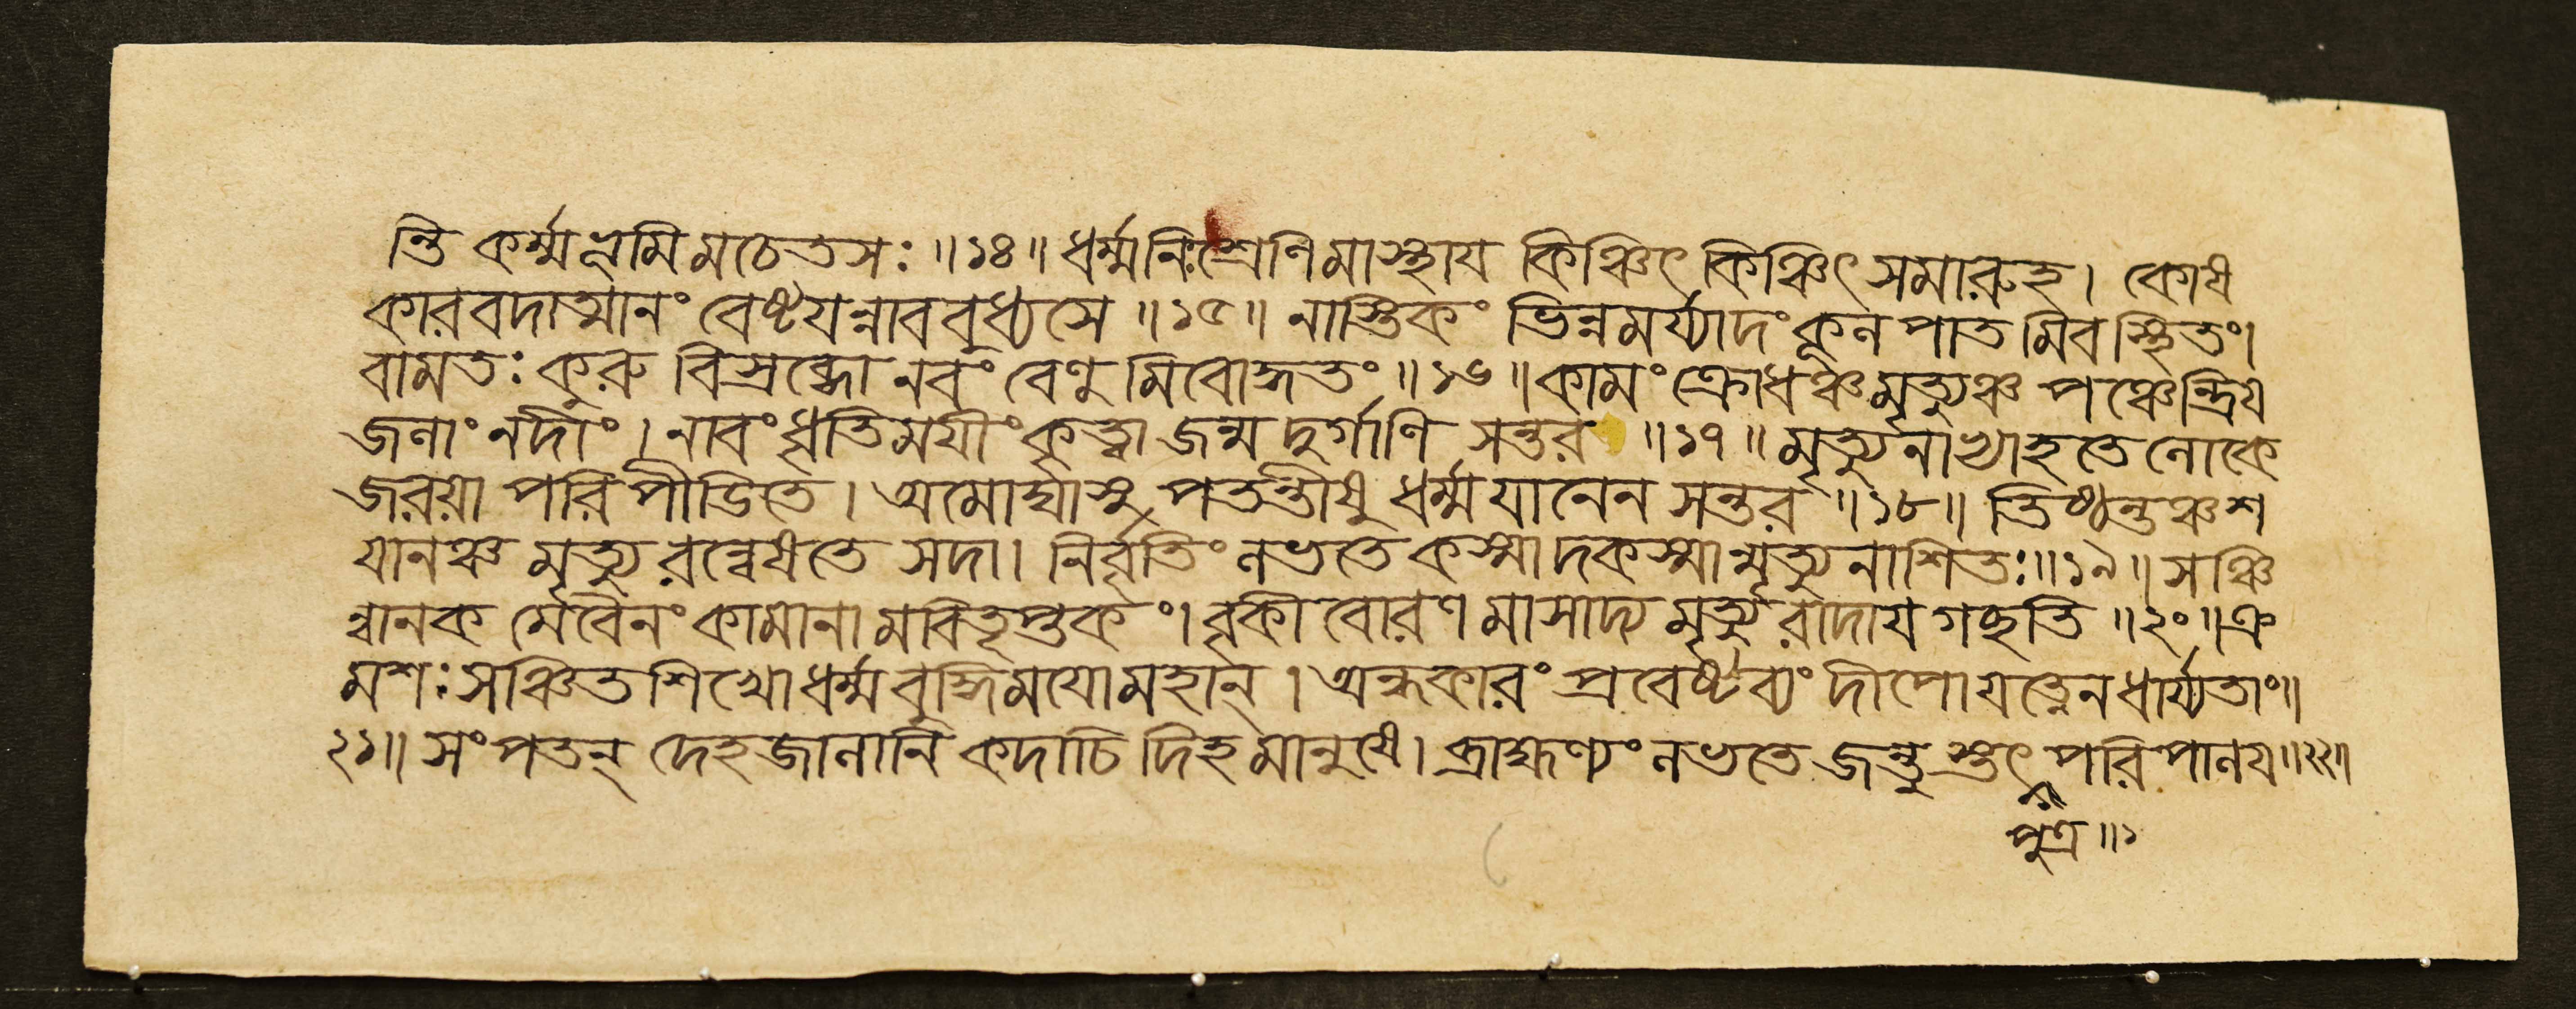 ন্তি কর্ম্মভূমিমচেতসঃ ॥১৪॥ ধর্ম্মনিঃশ্রেণিমাস্থায় কিঞ্চিৎ কিঞ্চিৎ সমারুহ। কোষ
কারবদাত্মানং বেষ্টয়ন্নাববুধ্যসে ॥১৫॥ নাস্তিকং ভিন্নমর্য্যাদং কূলপাতমিবস্থিতং।
বামতঃ কুরু বিস্রব্ধো নবং বেণুমিবোদ্ধতং ॥১৬॥ কামং ক্রোধঞ্চ মৃত্যুঞ্চ পঞ্চেন্দ্রিয়
জলাং নদীং। নাবং ধৃতিময়ীং কৃত্বা জন্ম দুর্গাণি সন্তর ॥১৭॥ মৃত্যুনাভ্যাহতে লোকে
জরয়া পরিপীডিতে। অমোঘাসু পতন্তীষু ধর্ম্মযানেন সন্তর ॥১৮॥ তিষ্ঠন্তঞ্চ শ
য়ানঞ্চ মৃত্যুরন্বেষতে সদা। নির্বৃতিং লভতে কস্মাদকস্মান্মৃত্যুনাশিতঃ॥১৯॥ সঞ্চি
ন্বানকমেবৈনং কামানামবিতৃপ্তকং। বৃকীবোরণমাসাদ্য মৃত্যুরাদায় গচ্ছতি ॥২০॥ ক্র
মশঃ সঞ্চিতশিখো ধর্ম্মবুদ্ধিময়ো মহান্। অন্ধকারং প্রবেষ্টব্যং দীপো যত্নেন ধার্য্যতাং॥
২১॥ সংপতন্ দেহজালানি কদাচিদিহ মানুষে। ব্রাহ্মণ্যং লভতে জন্তুস্তৎ পরিপালয়॥২২॥
পুত্র ॥১